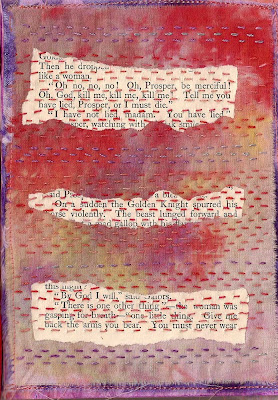 Then he dropped
like a woman.
"Oh no, no, no! Oh, Prosper, be merciful!
Oh, God, kill me, kill me, kill me! Tell me you
have lied, Prosper, or I must die."
"I have not lied, madam. You have lied"
watching with
On a sudden the Golden Knight spurred his
horse violently. The beast lunged forward and
gallop with
this night?"
"By God I will," said
"There is one other thing"—the woman was
gasping for breath—"one little thing. Give me
back the arms you bear. You must never wear